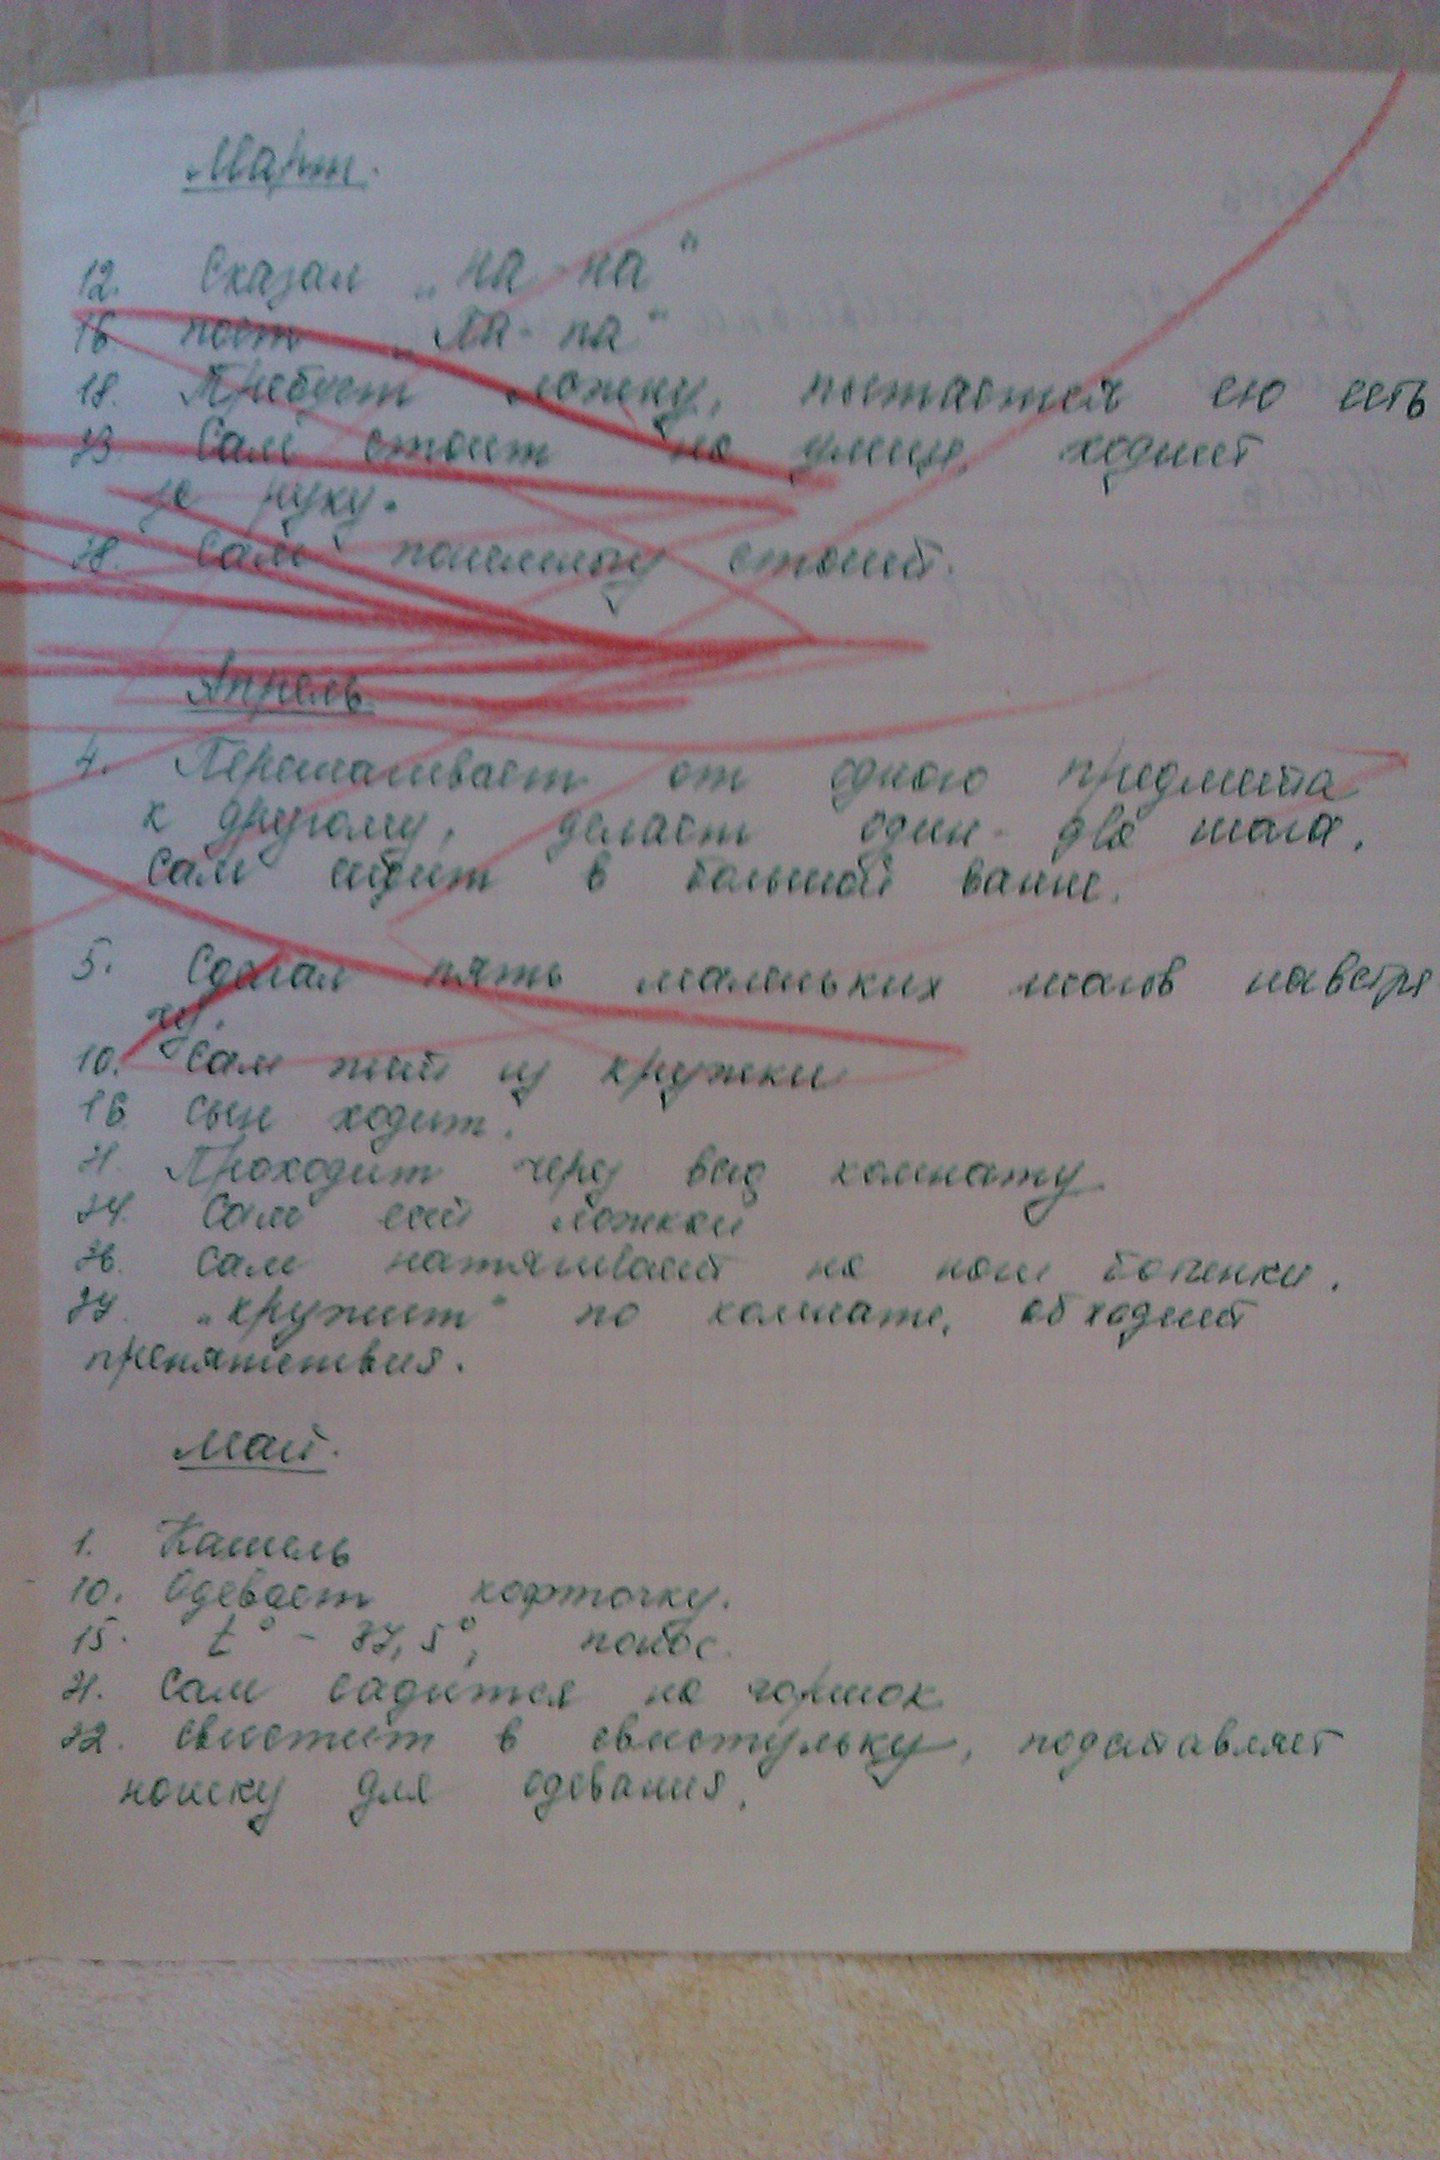 Март.
12. Сказал „на-на"
16. поет „Ла-ла"
18. Требует ложку, пытается ею есть
23. Сам стоит на улице, ходит
за руку.
28. Сам понемногу стоит.
Апрель.
4. Перешагивает от одного предмета
к другому, делает один-два шага.
Сам сидит в большой ванне.
5. Сделал пять маленьких шагов навстре
чу.
10. Сам пьёт из кружки
16. Сын ходит.
21. Проходит через всю комнату
24. Сам ест ложкой
26. Сам натягивает на ноги ботинки.
27. „кружит" по комнате, обходит
препятствия.
Май.
1. Кашель
10. Одевает кофточку.
15. t° - 37,5°, понос.
21. Сам садится на горшок
22. свистит в свистульку, подставляет
ножку для одевания.